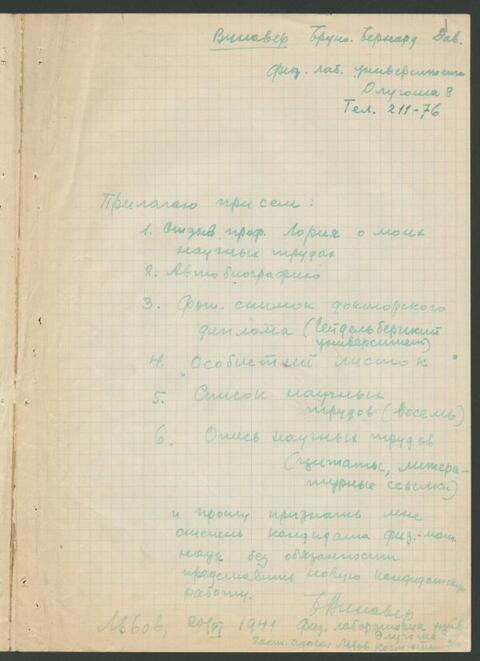 Винавер Бруно-Бернард Дав.
физ. лаб. университета
Длугоша 8
Тел. 211-76
Прилагаю при сем:
1. Отзыв проф. Лориа о моих
научных трудах
2. Автобиографию
3. Фот. снимок докторского
диплома (Гейдельбергский
университет)
4. "Особистий листок"
5. Список научных
трудов (восемь)
6. Опись научных трудов
(цитаты, литера-
турные ссылки)
и прошу признать мне
степень кандидата физ.-мат.
наук без обязанности
представить новую кандидатскую
работу.
БВинавер
Львов, 20/VI 1941 Физ. лаборатория унив.
Длугоша 8
Львов